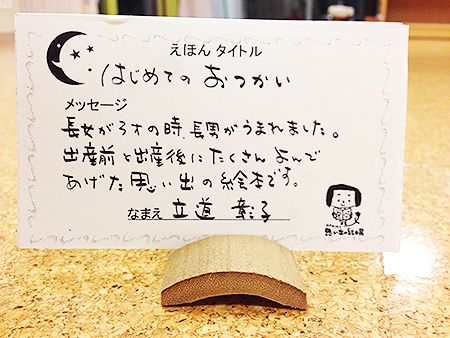 えほん タイトル
はじめての おつかい
メッセージ
長女が3才の時、長男がうまれました。
出産前と出産後にたくさん よんで
あげた思い出の絵本です。
なまえ 立道 彰子